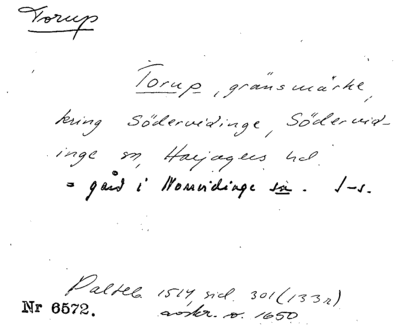 Torup
Torup, gränsmärke,
kring Södervidinge, Södervid-
inge sn, Harjagers hd.
= gård i Norrvidinge sn. J-s.
Palteb 1514, sid. 301 (133r)
avskr. o. 1650
Nr 6572.